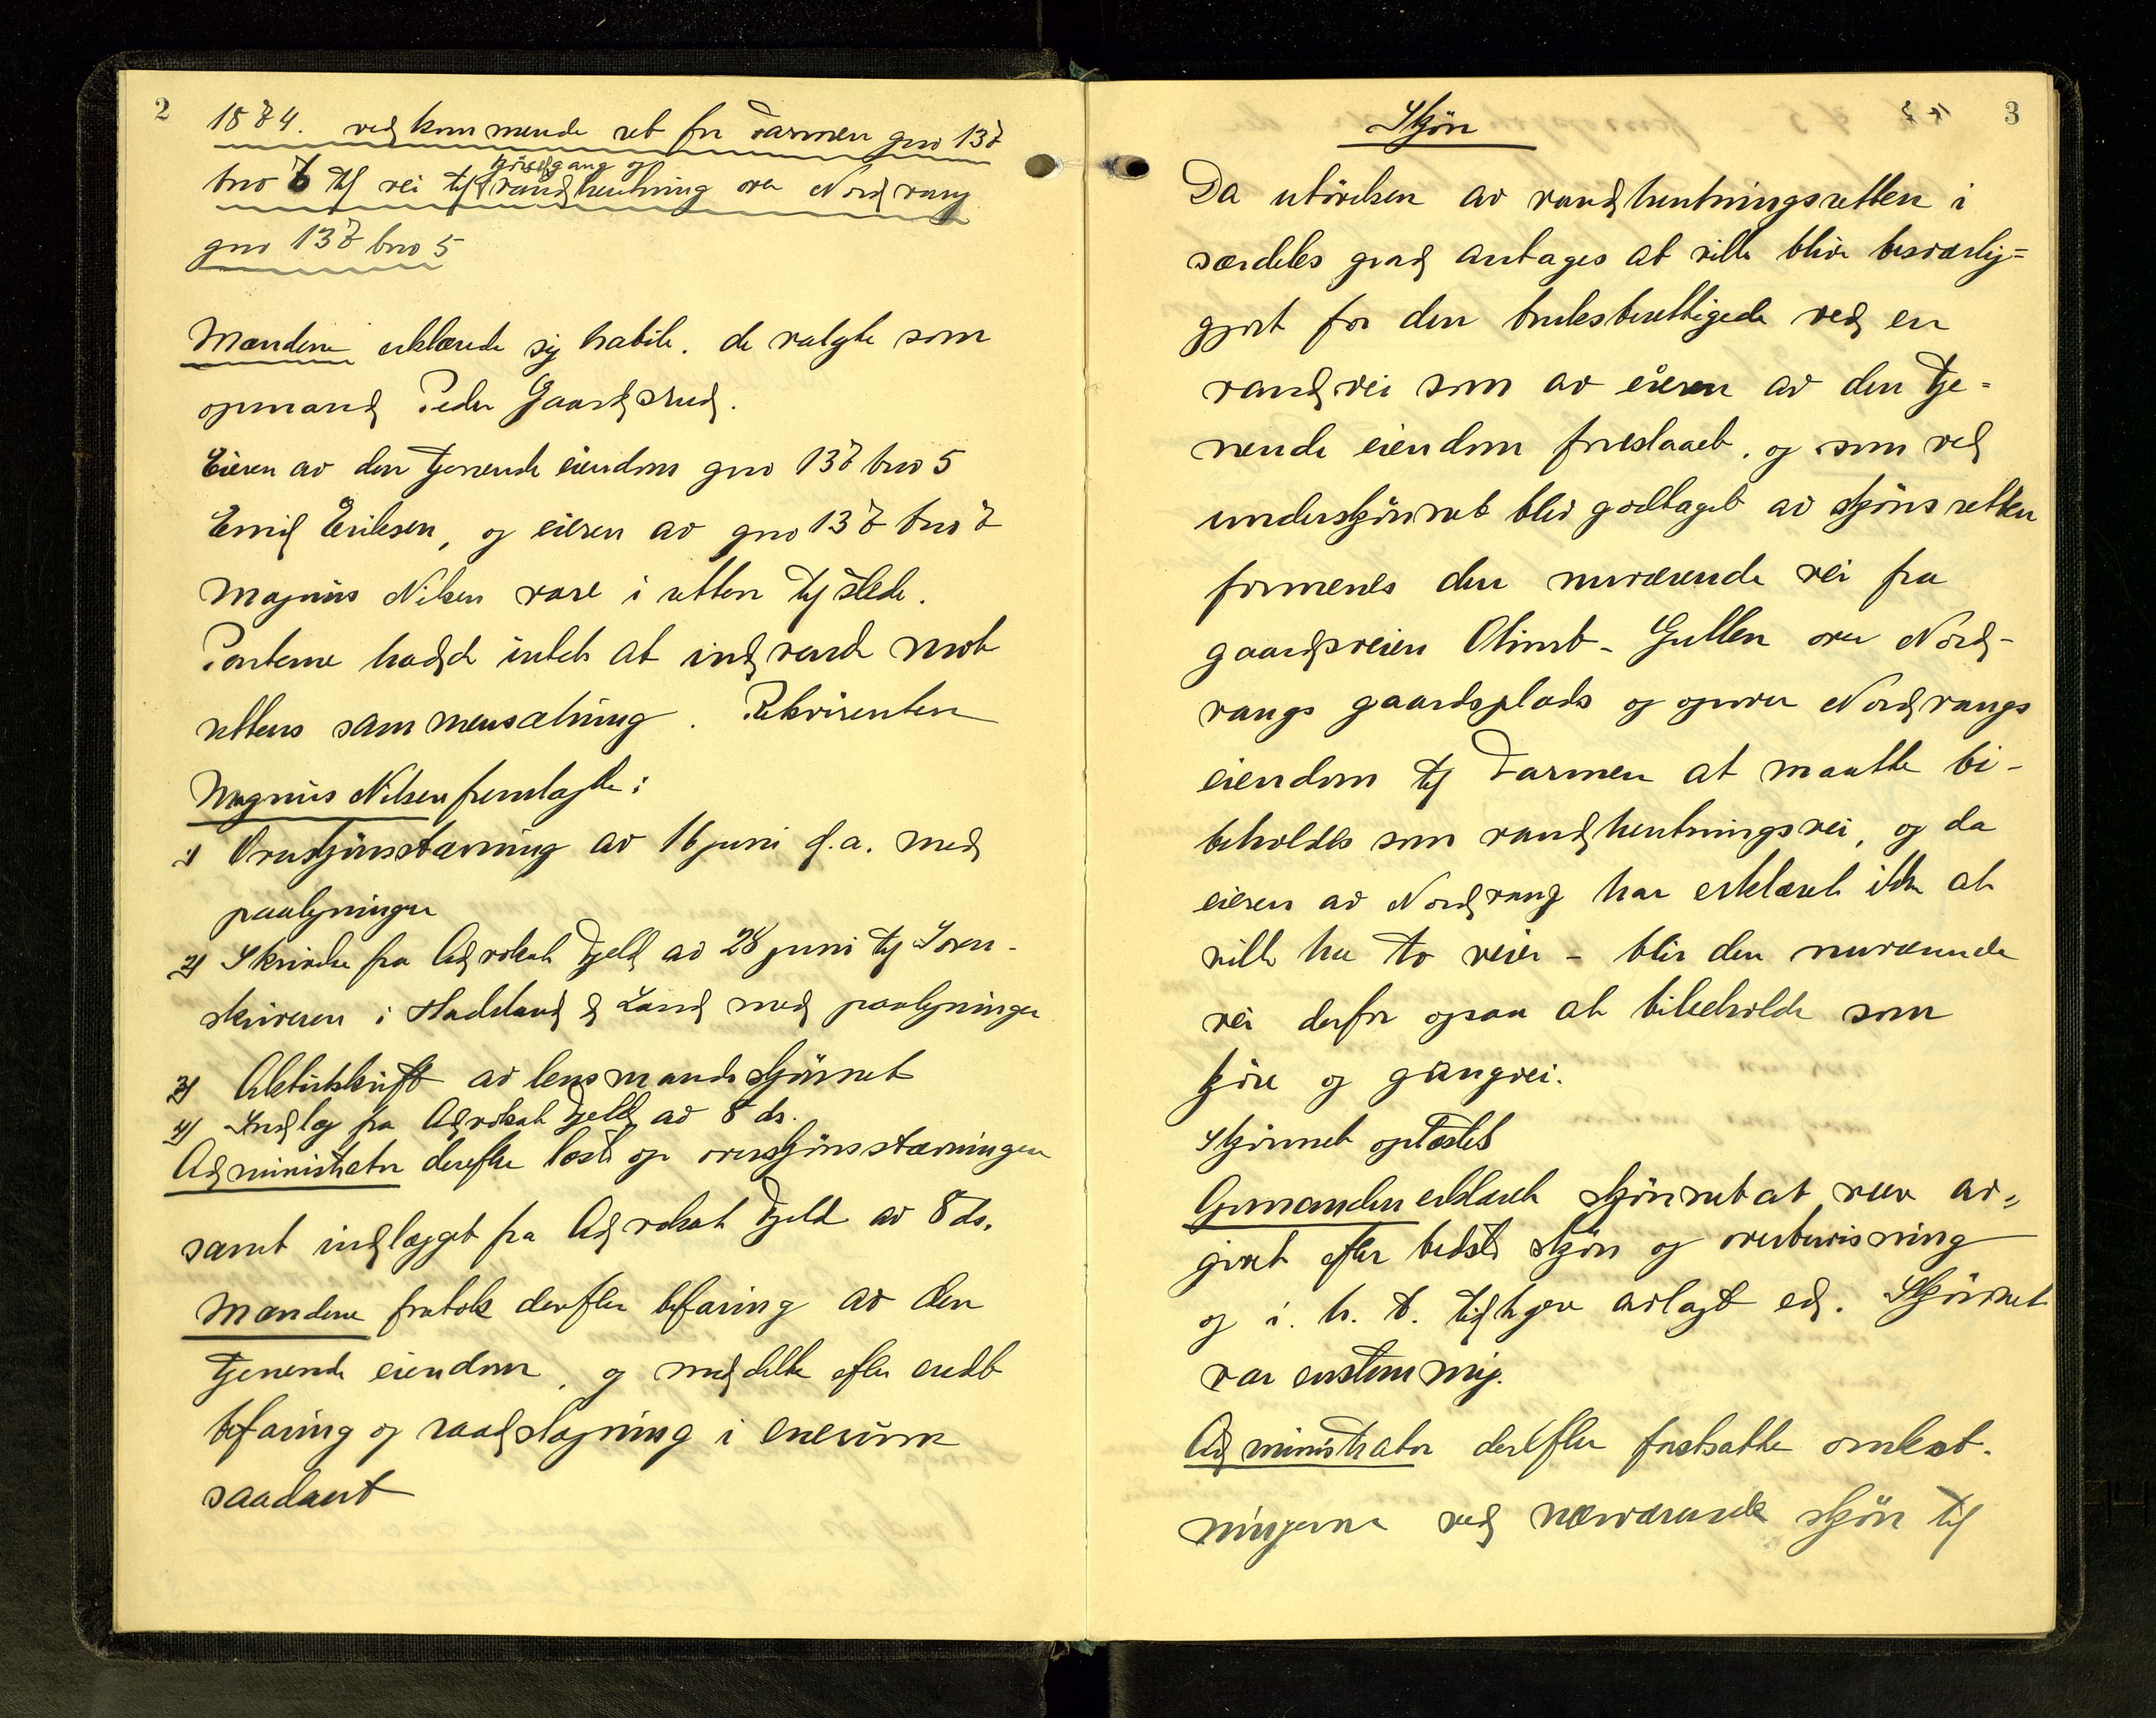 2
1874. vedkommende ret for Farmen gno 137
kjöre gang og
bno 7 til vei til vandhentning over Nordvang
gno 137 bno 5
Mændene erklærede sig habile. de valgte som
opmand Peder Gaardsrud.
Eieren av den tjenende eiendom gno 137 bno 5
Emil Eriksen, og eieren av gno 137 bno 7
Magnus Nilsen vare i retten tilstede.
Parterne hadde intet at indvende mot
rettens sammensætning. Rekvirenten
Magnus Nilsen fremlagte:
1) Overskjönsstævning av 16 juni d.a. med
paategninger
2) Skrivelse fra Advokat Fjeld av 28 juni til Soren-
skriveren i Hadeland & Land med paategninger
3) Aktutskrift av lensmandsskjönnet
4) Indlæg fra Advokat Fjeld av 8 ds.
Administrator derefter læste op overskjönsstævningen
samt indlægget fra Advokat Fjeld av 8 ds.
Mændene foretok derefter befaring av den
tjenende eiendom, og meddelte efter endt
befaring og raadslagning i enerum
saadant
3
Skjön
Da utövelsen av vandhentningsretten i
særdeles grad antages at ville blive besværlig=
gjort for den bruksberettigede ved en
vandvei som av eieren av den tje-
nende eiendom foreslaaet, og som ved
underskjönnet blev godtaget av skjönsretten
formenes den nuværende vei fra
gaardsveien Olimb - Gullen over Nord-
vangs gaardsplads og opover Nordvangs
eiendom til Farmen at maatte bi-
beholdes som vandhentningsvei, og da
eieren av Nordvang har erklæret ikke at
ville ha to veier - blir den nuværende
vei derfor ogsaa at bibeholde som
kjöre og gangvei.
Skjönnet oplæstes
Opmanden erklærte skjönnet at være av=
givet efter bedste skjön og overbevisning
og i h. t. tidligere avlagt ed. Skjönnet
var enstemmig.
Administrator derefter fastsatte omkost-
ningerne ved nærværende skjön til